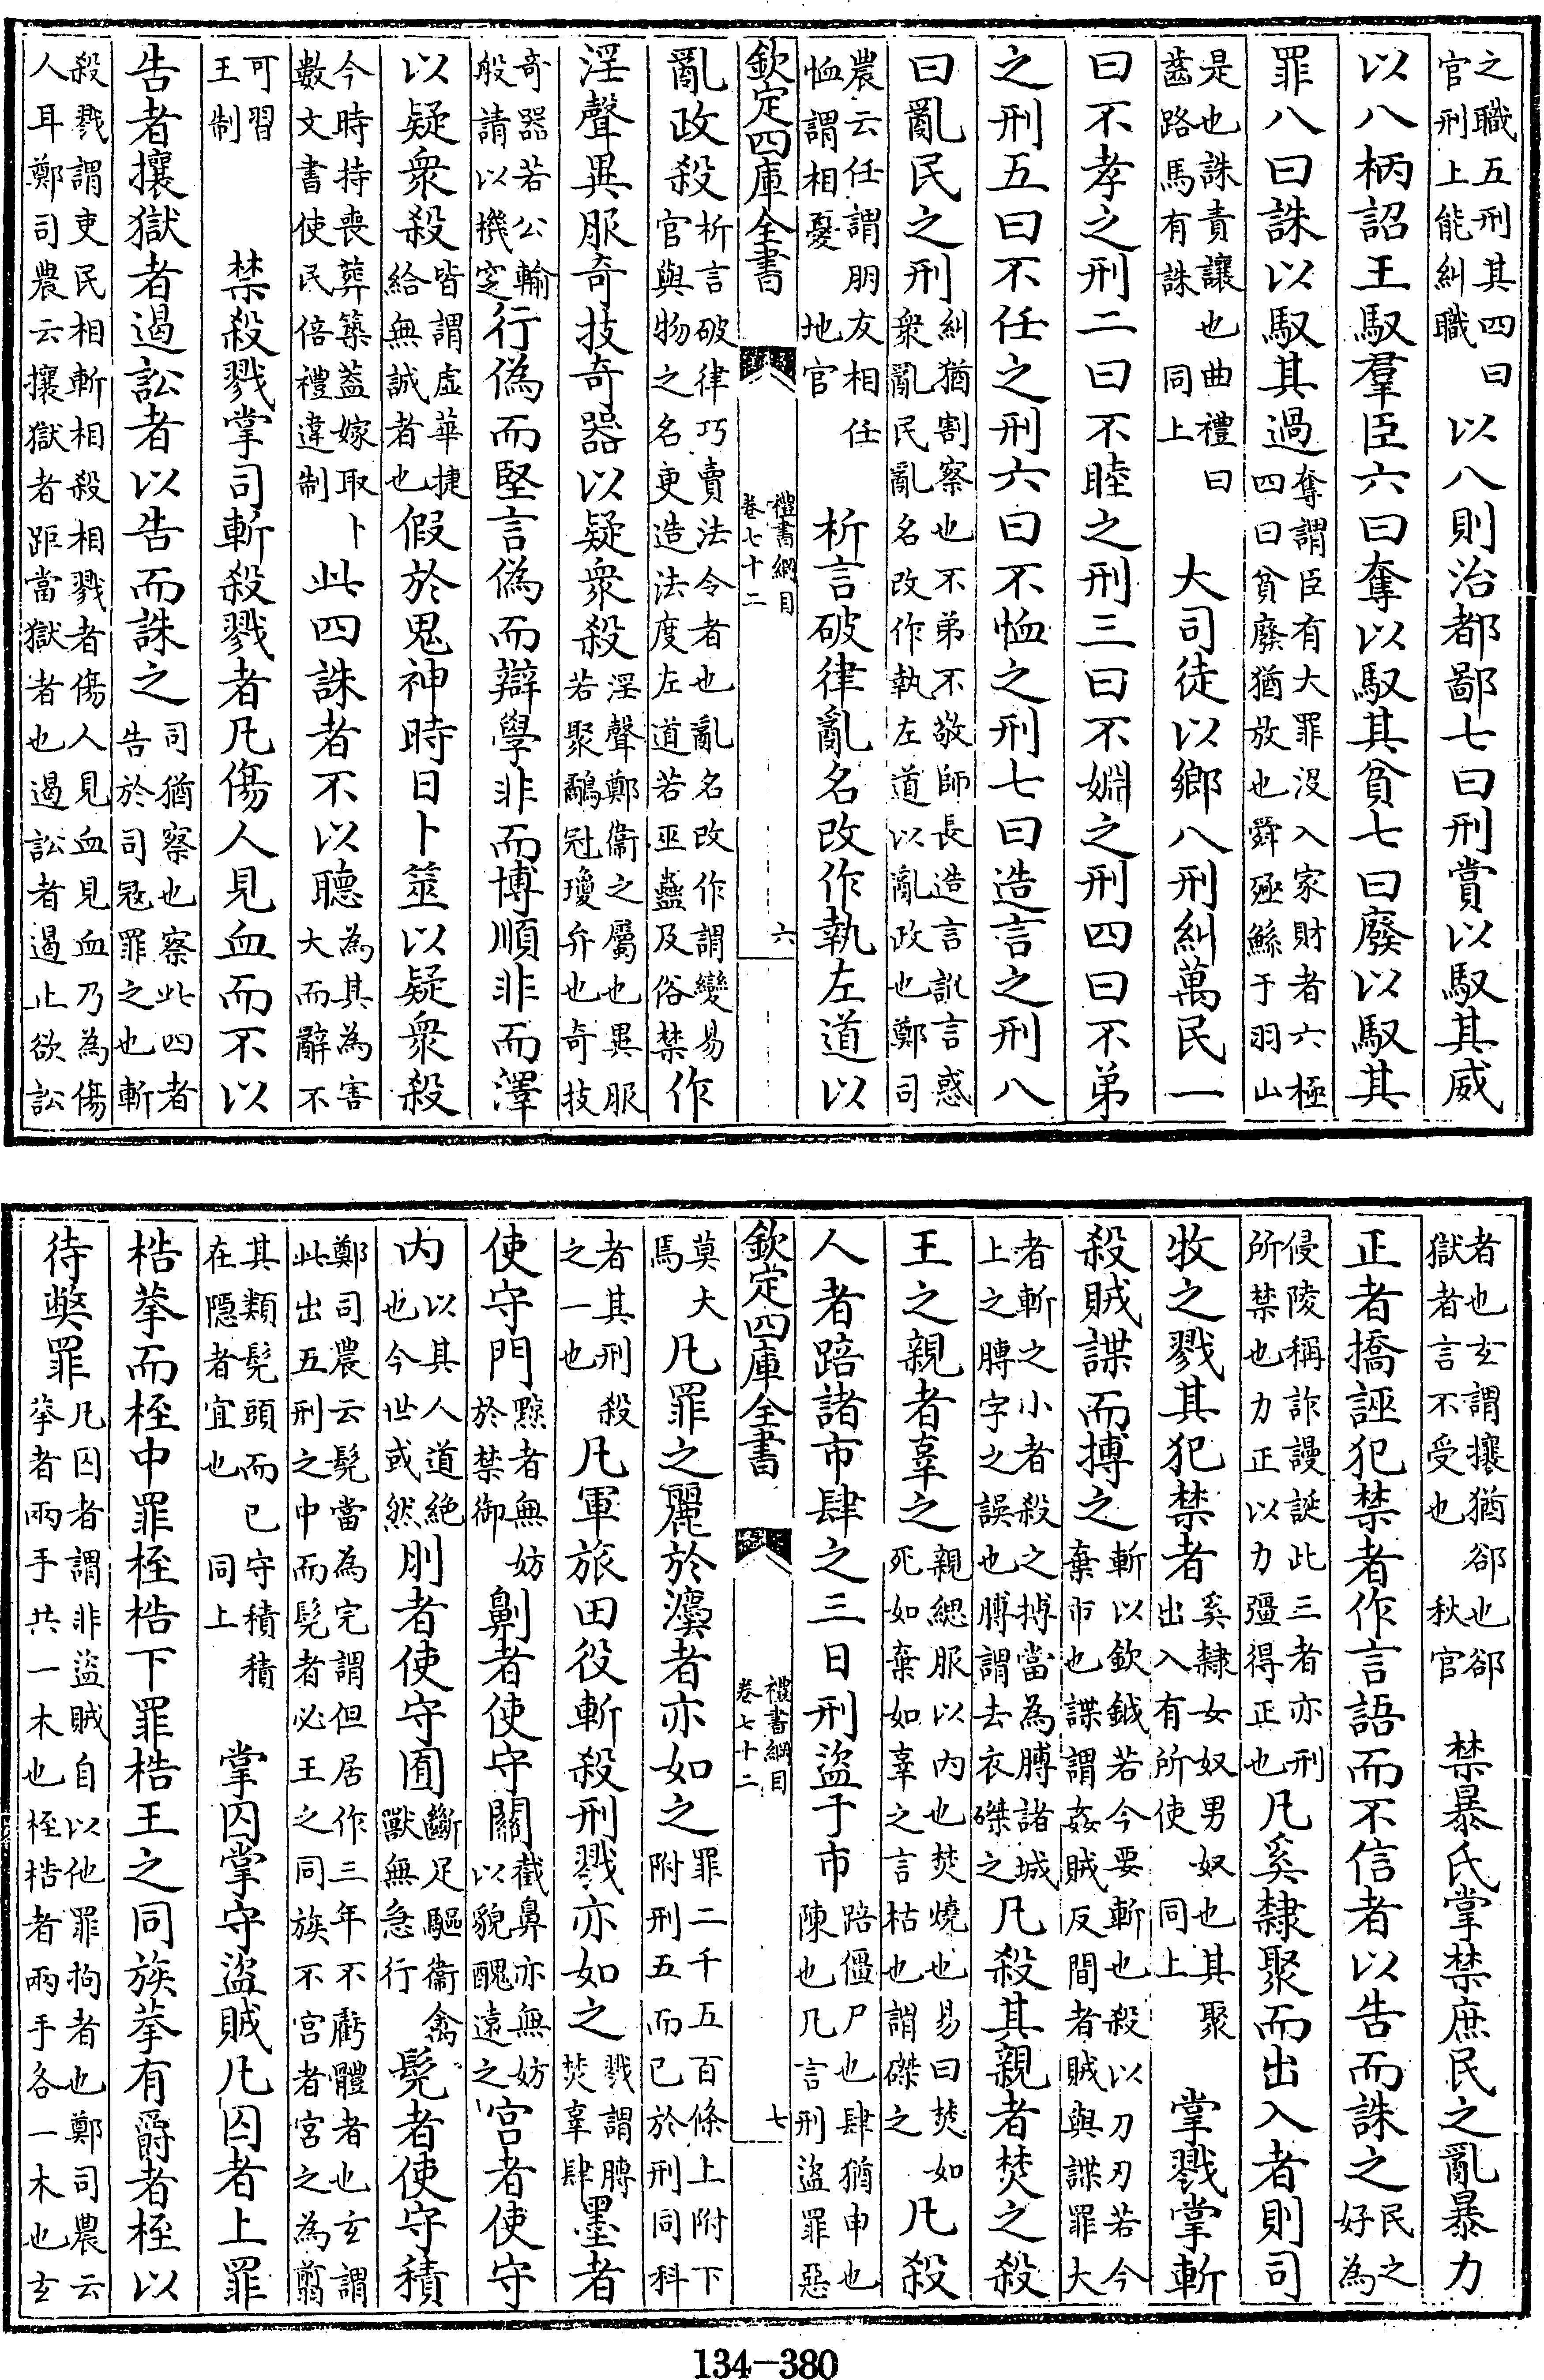 之職五刑其四曰官刑上能糾職以八則治都鄙七曰刑賞以馭其威
以八柄詔王馭羣臣六曰奪以馭其貧七曰廢以馭其
罪八曰誅以馭其過奪謂臣有大罪沒入家財者六極四曰貧廢猶放也舜殛鯀于羽山
是也誅責讓也曲禮曰齒路馬有誅 同上 大司徒以鄉八刑糾萬民一
曰不孝之刑二曰不睦之刑三曰不婣之刑四曰不弟
之刑五曰不任之刑六曰不恤之刑七曰造言之刑八
曰亂民之刑糾猶割察也不弟不敬師長造言訛言惑衆亂民亂名改作執左道以亂政也鄭司
農云任謂朋友相任恤謂相憂 地官 析言破律亂名改作執左道以
欽定四庫全書 禮書綱目 卷七十二 六
亂政殺析言破律巧賣法令者也亂名改作謂變易官與物之名更造法度左道若巫蠱及俗禁作
淫聲異服奇技奇器以疑衆殺淫聲鄭衞之屬也異服若聚鷸冠瓊弁也奇技
奇器若公輸般請以機窆行偽而堅言偽而辯學非而博順非而澤
以疑衆殺皆謂虛華捷給無誠者也假於鬼神時日卜筮以疑衆殺
今時持喪葬築蓋嫁取卜數文書使民倍禮違制此四誅者不以聽為其為害大而辭不
可習 王制 禁殺戮掌司斬殺戮者凡傷人見血而不以
告者攘獄者遏訟者以告而誅之司猶察也察此四者告於司寇罪之也斬
殺戮謂吏民相斬相殺相戮者傷人見血見血乃為傷人耳鄭司農云攘獄者距當獄者也遏訟者遏止欲訟
者也玄謂攘猶郤也郤獄者言不受也 秋官 禁暴氏掌禁庶民之亂暴力
正者撟誣犯禁者作言語而不信者以告而誅之民之好為
侵陵稱詐謾誕此三者亦刑所禁也力正以力彊得正也凡奚隸聚而出入者則司
牧之戮其犯禁者奚隸女奴男奴也其聚出入有所使 同上 掌戮掌斬
殺賊諜而搏之斬以鈇鉞若今要斬也殺以刀刃若今棄市也諜謂姦賊反間者賊與諜罪大
者斬之小者殺之搏當為膊諸城上之膊字之誤也膊謂去衣磔之凡殺其親者焚之殺
王之親者辜之親緦服以內也焚燒也易曰焚如死如棄如辜之言枯也謂磔之凡殺
人者踣諸市肆之三日刑盜于市踣僵尸也肆猶申也陳也凡言刑盜罪惡
欽定四庫全書 禮書綱目 卷七十二 七
莫大焉凡罪之麗於灋者亦如之罪二千五百條上附下附刑五而已於刑同科
者其刑殺之一也凡軍旅田役斬殺刑戮亦如之戮謂膊焚辜肆墨者
使守門黥者無妨於禁御劓者使守關截鼻亦無妨以貌醜遠之宮者使守
內以其人道絕也今世或然刖者使守囿斷足驅衞禽獸無急行髠者使守積
鄭司農云髠當為完謂但居作三年不虧體者也玄謂此出五刑之中而髠者必王之同族不宮者宮之為翦
其類髠頭而已守積積在隱者宜也 同上 掌囚掌守盜賊凡囚者上罪
梏拲而桎中罪桎梏下罪梏王之同族拲有爵者桎以
待弊罪凡囚者謂非盜賊自以他罪拘者也鄭司農云拲者兩手共一木也桎梏者兩手各一木也玄
134-380